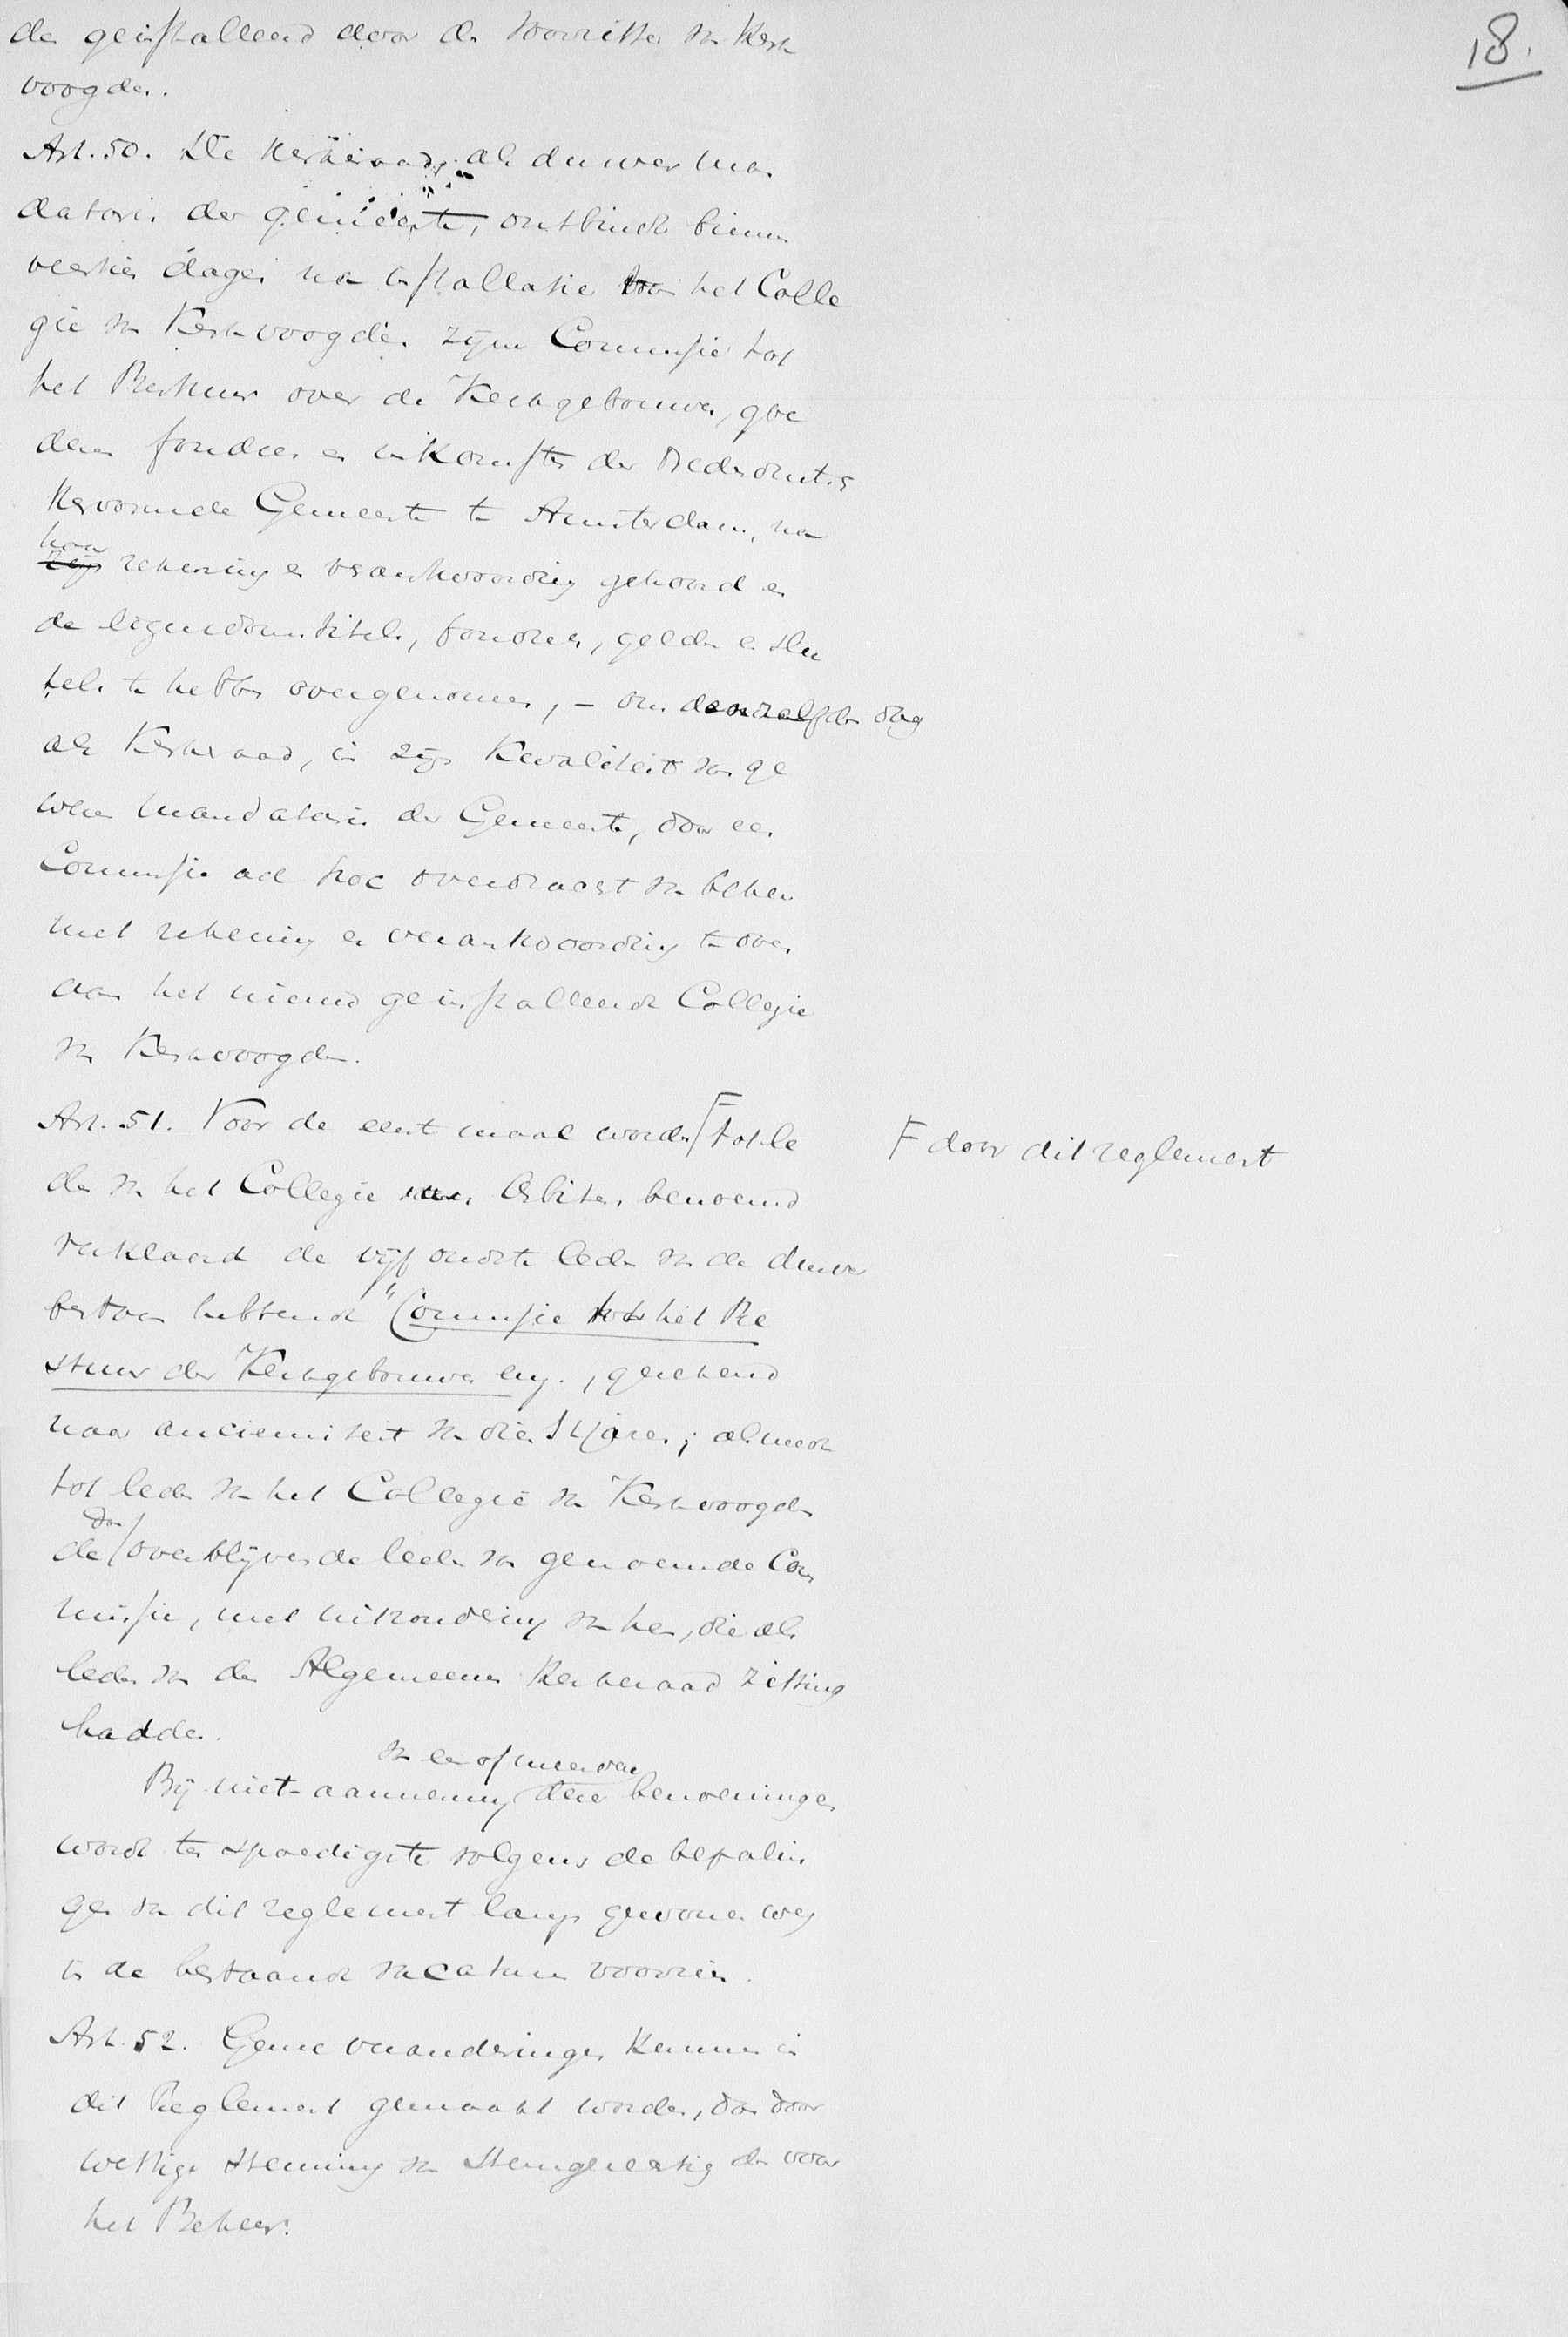 18.
den geïnstalleerd door den Voorzitter van Kerk
voogden.
Art. 50. De Kerkeraad, als dusver man
dataris der gemeente, ontbindt binnen
veertien dagen na installatie van het Colle
gie van Kerkvoogden zijne Commissie tot
het Bestuur over de Kerkgebouwen, goe
deren fondsen en inkomsten der Nederduitsch
Hervormde Gemeente te Amsterdam, na
haar
zijn rekening en verantwoording gehoord en
de eigendomstitels, fondsen, gelden en sleu
tels te hebben overgenomen, – om denzelfden dag
als Kerkeraad, in zijn Kwaliteit van ge
wezen mandataris der Gemeente, door een
Commissie ad hoc overdracht van beheer
met rekening en verantwoording te doen
aan het nieuw geïnstalleerde Collegie
van Kerkvoogden.
Art. 51. Voor de eerste maal worden F tot le
den van het Collegie van Arbiters benoemd
F door dit reglement
verklaard de vijf oudste leden van de dusver
bestaan hebbende "Commissie tot het Be
stuur der Kerkgebouwen enz., gerekend
naar ancienniteit van diensttijaren; alsmede
tot leden van het Collegie van Kerkvoogden
dan
de overblijvende leden van genoemde Com
missie, met uitzondering van hen, die als
leden van den Algemeenen Kerkeraad zitting
hadden.
van een of meer van
Bij niet-aanneming dezer benoemingen
wordt ten spoedigste volgens de bepalin
gen van dit reglement langs gewonen weg
in de bestaande vacatures voorzien.
Art. 52. Geene veranderingen kunnen in
dit Reglement gemaakt worden, dan door
wettige stemming van stemgerechtigden voor
het Beheer.